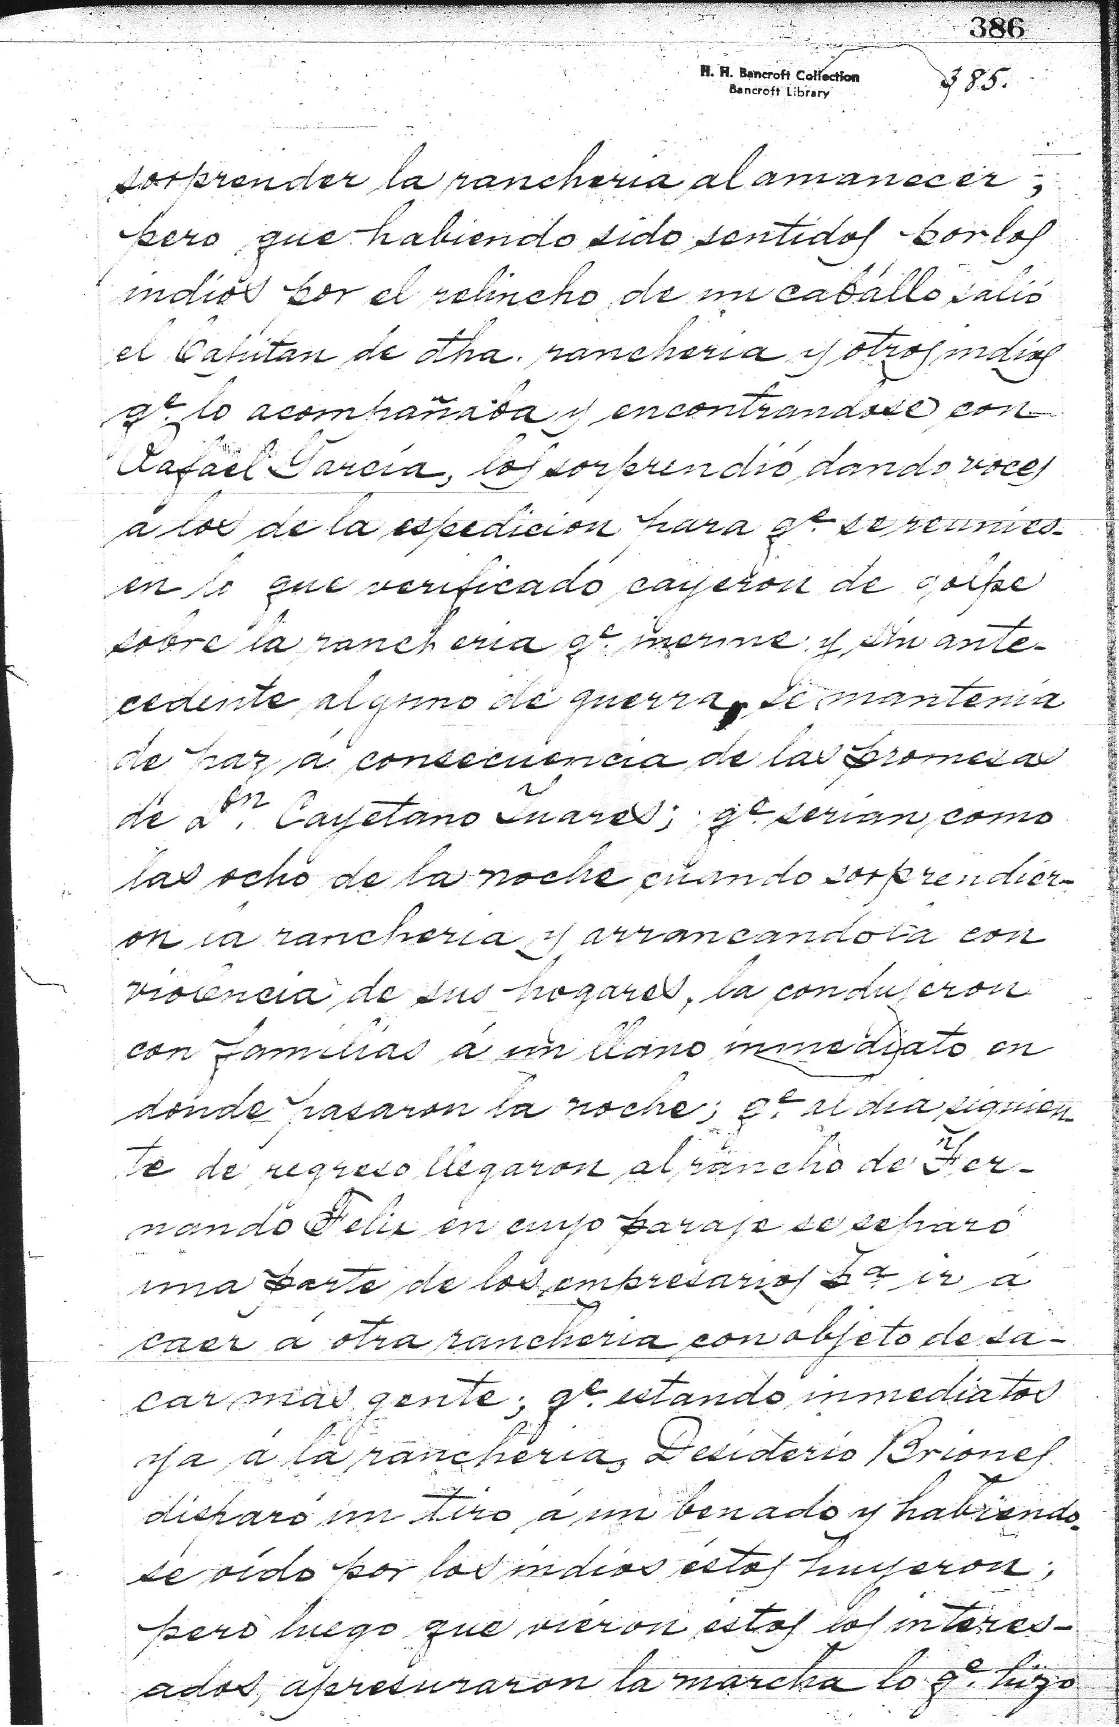 386
H. H. Bancroft Collection
Bancroft Library
385.
sorprender la rancheria al amanecer;
pero que habiendo sido sentidos por los
indios por el relincho de un caballo salió
el Capitan de dha. rancheria y otros indios
qe. lo acompañaba y encontrandose con
Rafael García, los sorprendió dando voces
á los de la espedicion para qe. se reunies-
en lo que verificado cayeron de golpe
sobre la rancheria qe. inerme y sin ante-
cedente alguno de guerra, se mantenia
de paz á consecuencia de las promesas
de Dn. Cayetano Juares; qe. serian como
las ocho de la noche cuando sorprendier-
on la rancheria y arrancandola con
violencia de sus hogares, la condujeron
con familias á un llano inmediato en
donde pasaron la noche; qe. al dia siguien-
te de regreso llegaron al rancho de Fer-
nando Felix en cuyo paraje se separó
una parte de los empresarios pa. ir á
caer á otra rancheria con objeto de sa-
car mas gente; qe. estando inmediatos
ya á la rancheria, Desiderio Briones
disparó un tiro á un benado y habiendo-
se oído por los indios éstos huyeron;
pero luego que vieron éstos los interes-
ados, apresuraron la marcha lo qe. hizo